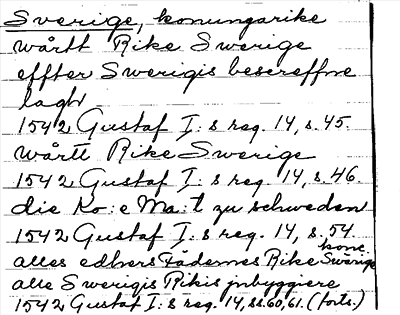 Sverige, konungarike
wårtt Rike Swerige
effter Swerigis bescreffne
lagh
1542 Gustaf I:s reg. 14, s. 45.
wårtt Rike Swerige
1542 Gustaf I:s reg. 14, s. 46.
die Ko:e Ma:t zu schweden
1542 Gustaf I:s reg. 14, s. 54.
alles edhers Fädernes Rike Swärige
alle Swerigis Rikis jnbyggiere
1542 Gustaf I:s reg. 14, ss. 60, 61. (forts.)